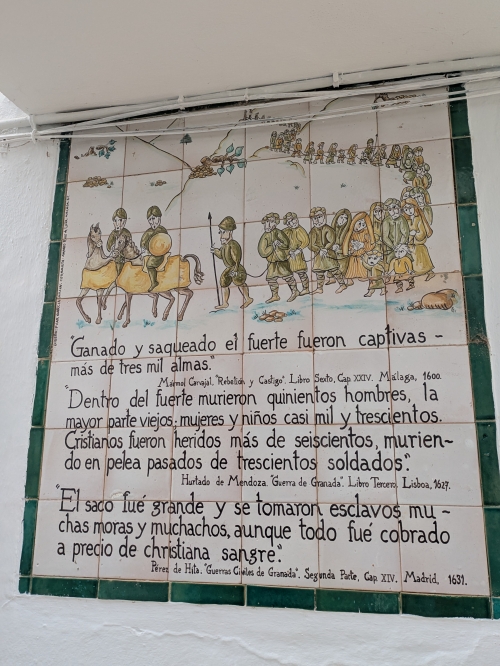 "Ganado y saqueado el fuerte fueron captivas -
más de tres mil almas."
Mármol Carvajal, "Rebelión y Castigo". Libro Sexto, Cap. XXIV. Málaga, 1600.
"Dentro del fuerte murieron quinientos hombres, la
mayor parte viejos; mujeres y niños casi mil y trescientos.
Cristianos fueron heridos más de seiscientos, murien-
do en pelea pasados de trescientos soldados."
Hurtado de Mendoza. "Guerra de Granada". Libro Tercero. Lisboa, 1627.
"El saco fué grande y se tomaron esclavos mu-
chas moras y muchachos, aunque todo fué cobrado
a precio de christiana sangre."
Pérez de Hita. "Guerras Civiles de Granada". Segunda Parte, Cap. XIV. Madrid, 1631.